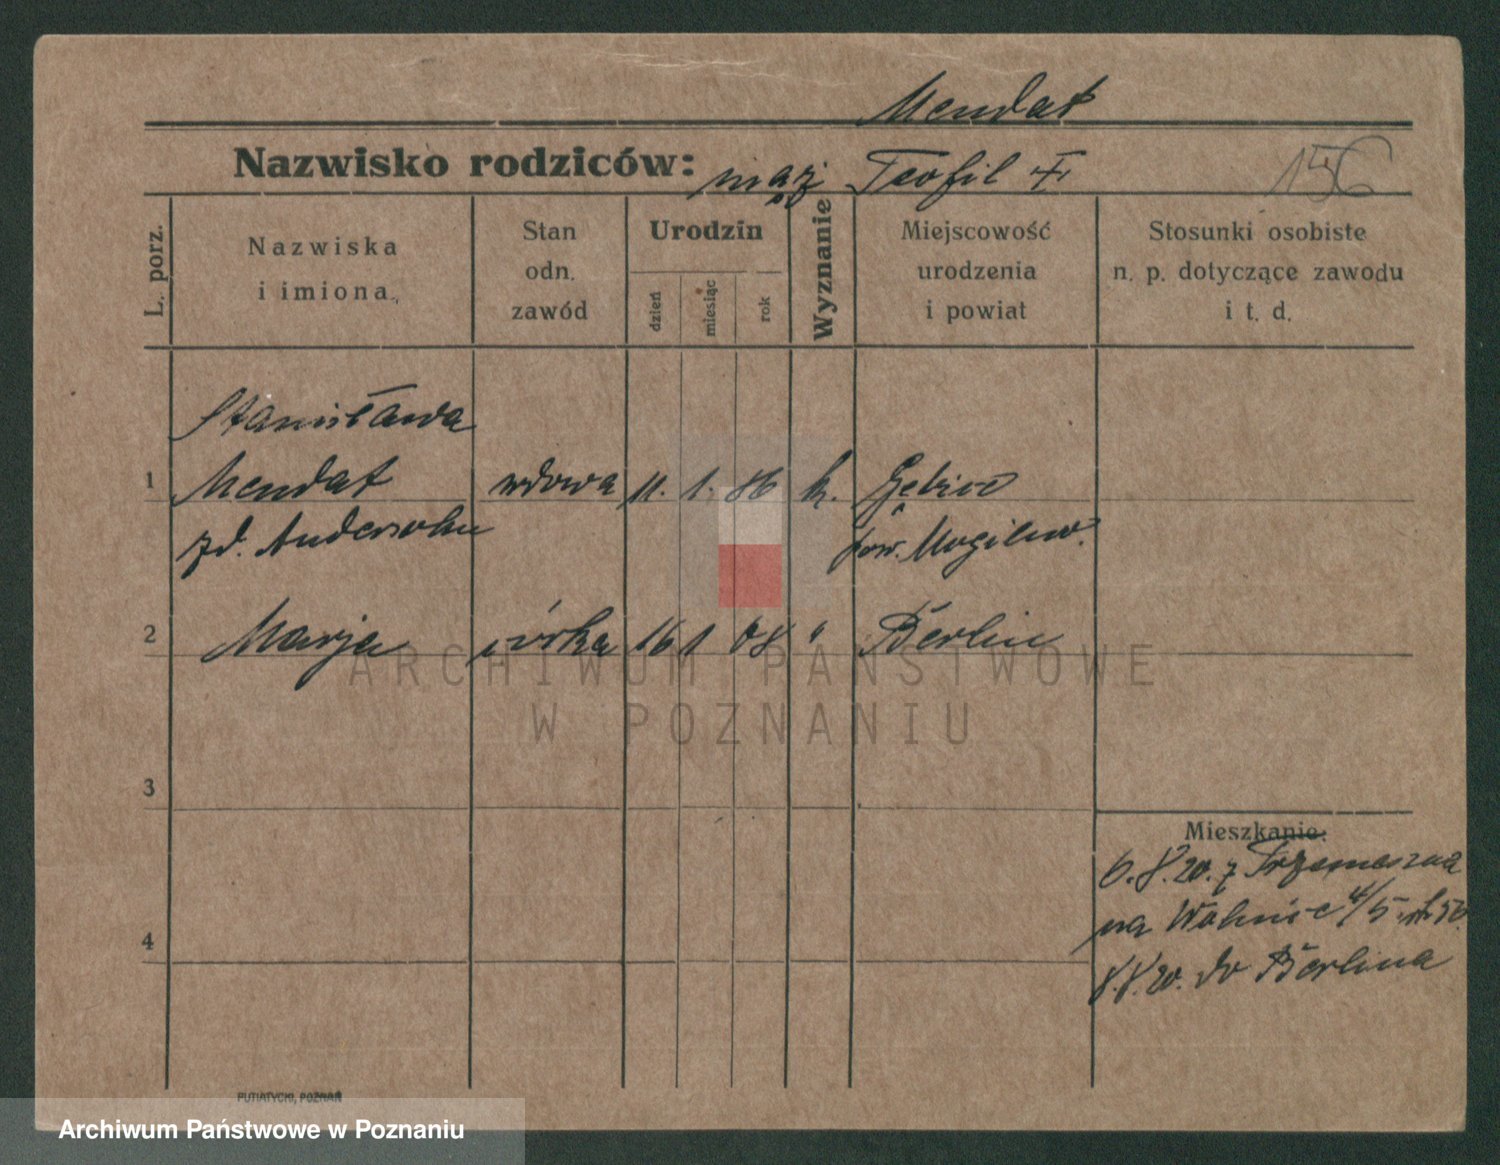 Mendat
Nazwisko rodziców: mąż Teofil
156
L. porz.
Nazwiska
i imiona.
Stan
odn.
zawód
Urodzin
dzień
miesiąc
rok
Wyznanie
Miejscowość
urodzenia
i powiat
Stosunki osobiste
n. p. dotyczące zawodu
i t. d.
Stanisława
1 Mendat wdowa 11. 1. 86 k. Gębice
zd. pow. Mogilno.
2 Marja córka 16 1 08 " Berlin
ARCHIWUM PAŃSTWOWE
W POZNANIU
3
Mieszkanie:
6.8.20. z Trzemeszna
na Wolnicę 4/5
4
8.8.20. do Berlina
PUTIATYCKI, POZNAŃ
Archiwum Państwowe w Poznaniu